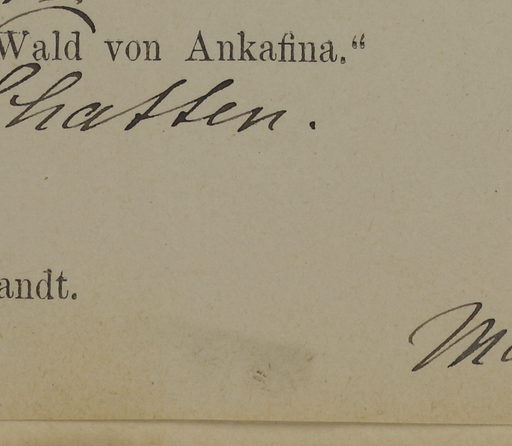 Wald von Ankafina.“
Schatten.
andt.